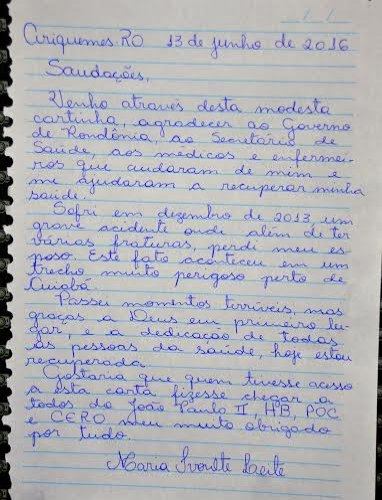 Ariquemes.RO 13 de junho de 2016
Saudações,
Venho através desta modesta
cartinha, agradecer ao Governo
de Rondônia, ao Secretário de
Saúde, aos médicos e enfermei-
ros que cuidaram de mim e
me ajudaram a recuperar minha
saúde.
Sofri em dezembro de 2013, um
grave acidente onde além de ter
várias fraturas, perdi meu es-
poso. Este fato aconteceu em um
trecho muito perigoso perto de
Cuiabá.
Passei momentos terríveis, mas
graças a Deus em primeiro lu-
gar, e a dedicação de todas
as pessoas da saúde, hoje estou
recuperada.
Gostaria que quem tivesse acesso
a esta carta fizesse chegar a
todos do João Paulo II, HB, POC
e CERO, meu muito obrigado
por tudo.
Maria Ivonete Leite